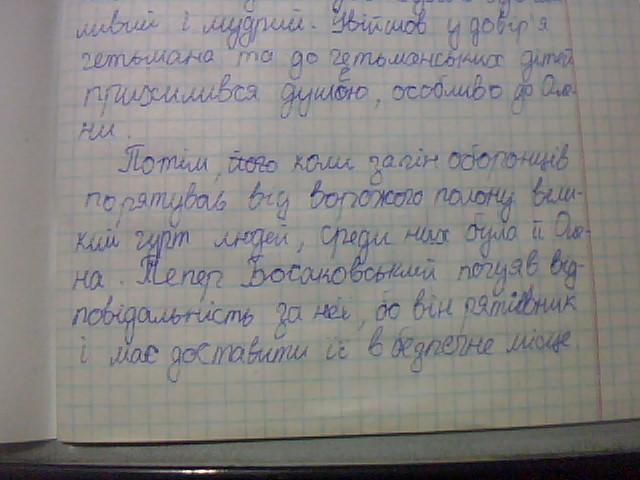 ливий і мудрий. Увійшов у довір'я
гетьмана та до гетьманських дітей
прихилився душею, особливо до Оле-
ни.
Потім, його коли загін оборонців
порятував від ворожого полону вели-
кий гурт людей, серед них була й Оле-
на. Тепер Босаковський почував від-
повідальність за неї, бо він рятівник
і має доставити її в безпечне місце